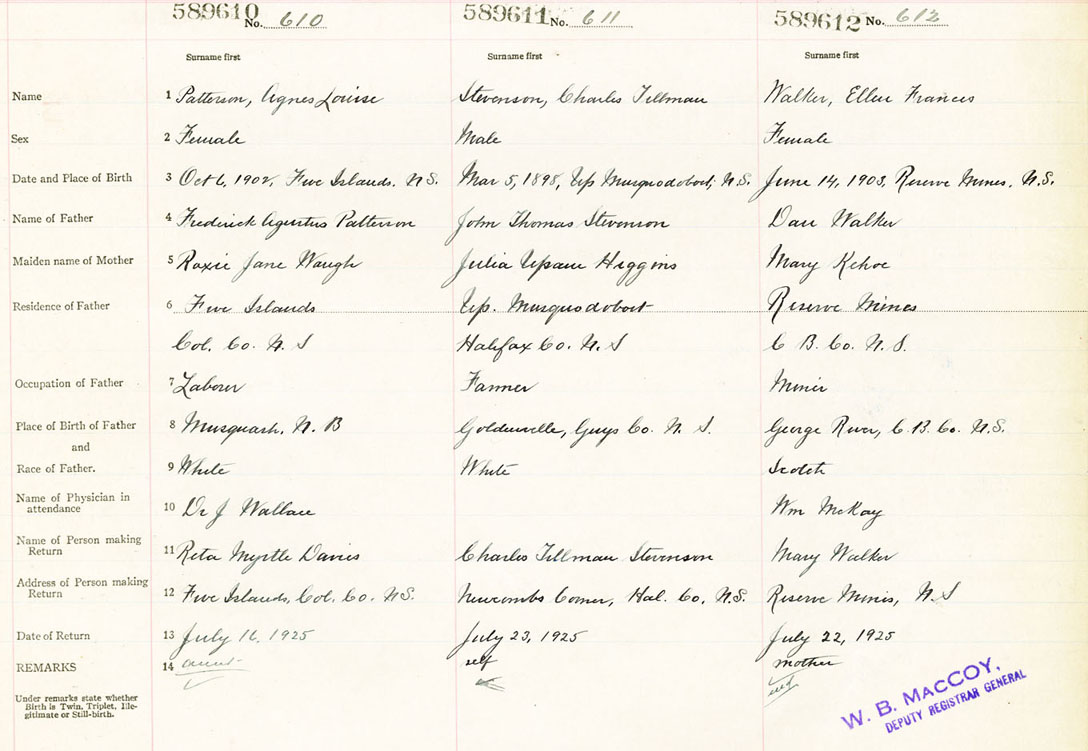 589610 No. 610 589611 No. 611 589612 No. 612
Surname first Surname first Surname first
Name 1 Patterson, Agnes Louise Stevenson, Charles Tillman Walker, Ellen Frances
Sex 2 Female Male Female
Date and Place of Birth 3 Oct 6, 1902, Five Islands, N.S. Mar 5, 1898, Up Musquodoboit, N.S. June 14, 1903, Reserve Mines, N.S.
Name of Father 4 Frederick Agustus Patterson John Thomas Stevenson Dan Walker
Maiden name of Mother 5 Roxie Jane Waugh Julia Higgins Mary Kehoe
Residence of Father 6 Five Islands Up. Musquodoboit Reserve Mines
Col. Co. N. S Halifax Co. N. S C B. Co. N. S.
Occupation of Father 7 Laborer Farmer Miner
Place of Birth of Father 8 Musquash, N. B Goldenville, Guys Co. N. S. George River, C. B. Co. N.S.
and
Race of Father. 9 White White Scotch
Name of Physician in
attendance 10 Dr J Wallace Wm McKay
Name of Person making
Return 11 Reta Myrtle Davies Charles Tillman Stevenson Mary Walker
Address of Person making
Return 12 Five Islands, Col. Co. N.S. Newcombs Corner, Hal. Co, N.S. Reserve Mines, N. S
Date of Return 13 July 16. 1925 July 23, 1925 July 22, 1925
REMARKS 14 aunt self mother
Under remarks state whether
Birth is Twin, Triplet, Ille-
gitimate or Still-birth.
W. B. MACCOY,
DEPUTY REGISTRAR GENERAL